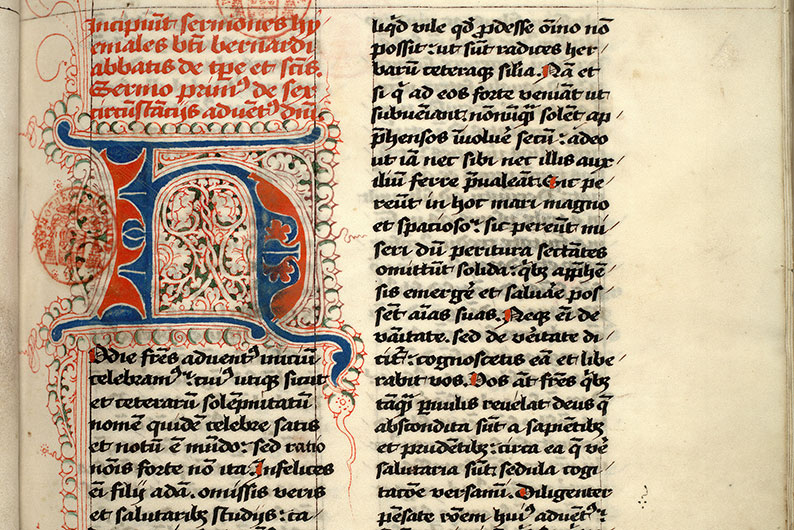 Incipiunt sermones hy
emales bti bernardi
abbatis de tpe et scis.
Sermo primꝰ de ser
circūstācijs adventꝰ dni.
H
Odie frēs adventꝰ iniciū
celebramꝰ: cuiꝰ utique sicut
et ceterarū solēpnitatū
nomē quidē celebre satis
et notū ē mūdo: sed ratio
nōis forte nō ita. Infelices
ei filij adā. omissis veris
et salutaribꝫ studijs: ca
liqd vile qd prodesse oīno nō
possit: ut sūt radices her
barū ceteraque silia. Nā et
si q ad eos forte veniāt ut
subveniant: nōnūqā solēt ap
phensos īvolvē secū: adeo
ut iā nec sibi nec illis aux
iliū ferre pvaleāt. Sic pe
reūt in hoc mari magno
et spaciosoꝰ: sic pereūt mi
seri dū peritura sectātes
omittūt solida: qbꝫ apphē
sis emergē et salvāe pos
sēt aīas suas. Neque ei de
vāitate. sed de vēitate di
citꝰ: cognoscetis eā et libe
rabit vos. Vos āt frēs qbꝫ
tāqā pvulis revelat deus q
abscondita sūt a sapiētibꝫ
et prudētibꝫ: circa ea q vē
salutaria sūt: sedula cogi
tatōe versamī. Diligenter
pēsate rōem huiꝰ adventꝰ: